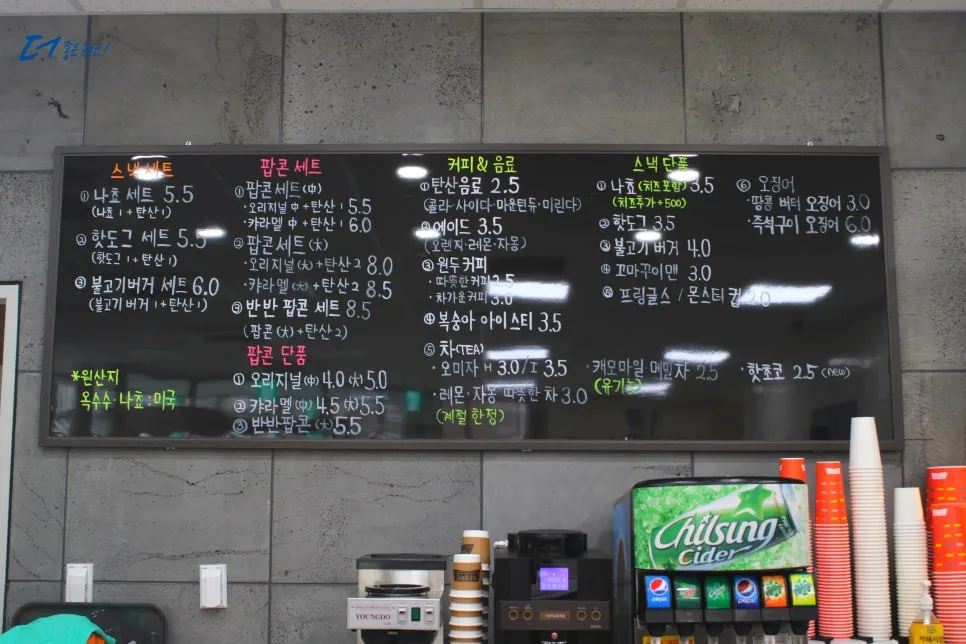 더 좋은
스낵 세트
① 나쵸 세트 5.5
(나쵸 1 + 탄산 1)
② 핫도그 세트 5.5
(핫도그 1 + 탄산 1)
③ 불고기버거 세트 6.0
(불고기 버거 1 + 탄산 1)
*원산지
옥수수·나쵸 : 미국
팝콘 세트
① 팝콘세트 (中)
·오리지널 中 + 탄산 1 5.5
·캬라멜 中 + 탄산 1 6.0
② 팝콘세트 (大)
·오리지널 (大) + 탄산 2 8.0
·캬라멜 (大) + 탄산 2 8.5
③ 반반 팝콘 세트 8.5
(팝콘 (大) + 탄산 2)
팝콘 단품
① 오리지널 (中) 4.0 (大) 5.0
② 캬라멜 (中) 4.5 (大) 5.5
③ 반반팝콘 (大) 5.5
커피 & 음료
① 탄산음료 2.5
(콜라·사이다·마운틴듀·미린다)
② 에이드 3.5
(오렌지·레몬·자몽)
③ 원두커피
·따뜻한커피 2.5
·차가운커피 3.0
④ 복숭아 아이스티 3.5
⑤ 차(TEA)
·오미자 H 3.0 / I 3.5
·레몬·자몽 따뜻한 차 3.0
(계절 한정)
·캐모마일·메밀차 2.5
(유기농)
·핫쵸코 2.5 (new)
스낵 단품
① 나쵸 (치즈 포함) 3.5
(치즈추가 + 500)
② 핫도그 3.5
③ 불고기 버거 4.0
④ 꼬마꾸이맨 3.0
⑤ 프링글스 / 몬스터 컵 2.0
⑥ 오징어
·땅콩 버터 오징어 3.0
·즉석구이 오징어 6.0
YOUNGDO
Chilsung
Cider
pepsi
pepsi